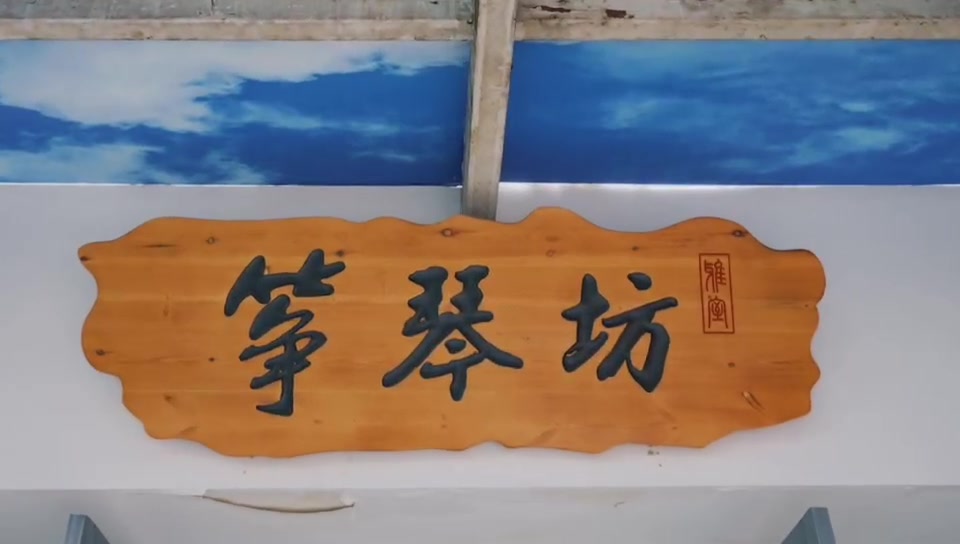 筝琴坊
雅室